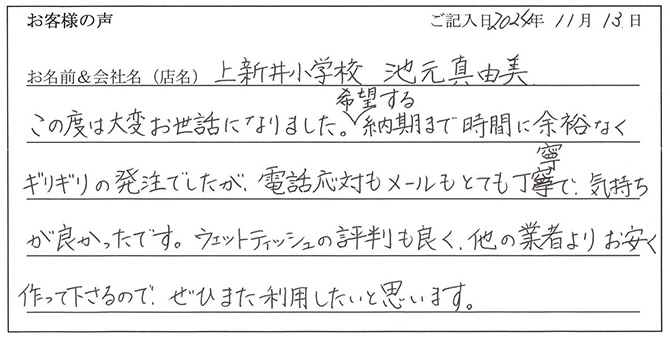 お客様の声 ご記入日2024年 11月 13日
お名前&会社名（店名） 上新井小学校 池元真由美
希望する
この度は大変お世話になりました。納期まで時間に余裕なく
寧
ギリギリの発注でしたが、電話応対もメールもとても丁寧で、気持ち
が良かったです。ウェットティッシュの評判も良く、他の業者よりお安く
作って下さるので、ぜひまた利用したいと思います。